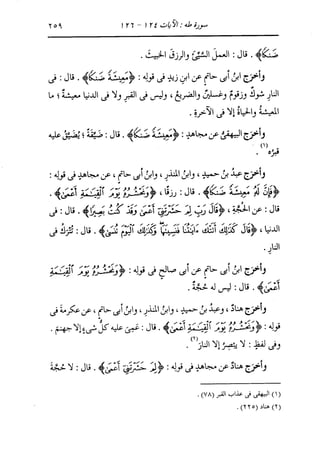 سورة طه : الآيات ١٢٤ - ١٢٦
٢٥٩
ضَنكًا﴾. قال: العملُ السَّيِّئُ والرزقُ الخبيثُ.
وأخرَج ابنُ أبى حاتمٍ عن ابنِ زيدٍ فى قولِه: ﴿مَعِيشَةً ضَنكًا﴾. قال: فى
النارِ شوكٌ وزقومٌ وغسلينٌ والضريعُ، وليس فى القبرِ ولا فى الدنيا معيشةٌ؛ ما
المعيشةُ والحياةُ إلا فى الآخرةِ.
وأخرَج البيهقىُّ عن مجاهدٍ: ﴿مَعِيشَةً ضَنكًا﴾. قال: ضَيِّقةً؛ يُضَيَّقُ عليه
قبرُه(١).
وأخرَج عبدُ بنُ حميدٍ، وابنُ المنذرِ، وابنُ أبى حاتمٍ، عن مجاهدٍ فى قولِه:
﴿فَإِنَّ لَهُ مَعِيشَةً ضَنكًا﴾. قال: رزقًا، ﴿وَنَحْشُرُهُ يَوْمَ الْقِيَامَةِ أَعْمَى﴾.
قال: عن الحُجَّةِ، ﴿قَالَ رَبِّ لِمَ حَشَرْتَنِي أَعْمَى وَقَدْ كُنتُ بَصِيرًا﴾. قال: فى
الدنيا، ﴿قَالَ كَذَلِكَ أَتَتْكَ آيَاتُنَا فَنَسِيتَهَا وَكَذَلِكَ الْيَوْمَ تُنسَى﴾. قال: تُتْرَكُ فى
النارِ.
وأخرَج ابنُ أبى حاتمٍ عن أبى صالحٍ فى قولِه: ﴿وَنَحْشُرُهُ يَوْمَ الْقِيَامَةِ
أَعْمَى﴾. قال: ليس له حُجَّةٌ.
وأخرَج هنادٌ، وعبدُ بنُ حميدٍ، وابنُ المنذرِ، وابنُ أبى حاتمٍ، عن عكرمةَ فى
قولِه: ﴿وَنَحْشُرُهُ يَوْمَ الْقِيَامَةِ أَعْمَى﴾. قال: عَمِىَ عليه كلُّ شىءٍ إلا جهنمَ.
وفى لفظٍ: لا يُبْصِرُ إلا النارَ(٢).
وأخرَج هنادٌ عن مجاهدٍ فى قولِه: ﴿لِمَ حَشَرْتَنِي أَعْمَى﴾. قال: لا حُجَّةَ
(١) البيهقى فى عذاب القبر (٧٨).
(٢) هناد (٢٢٥).